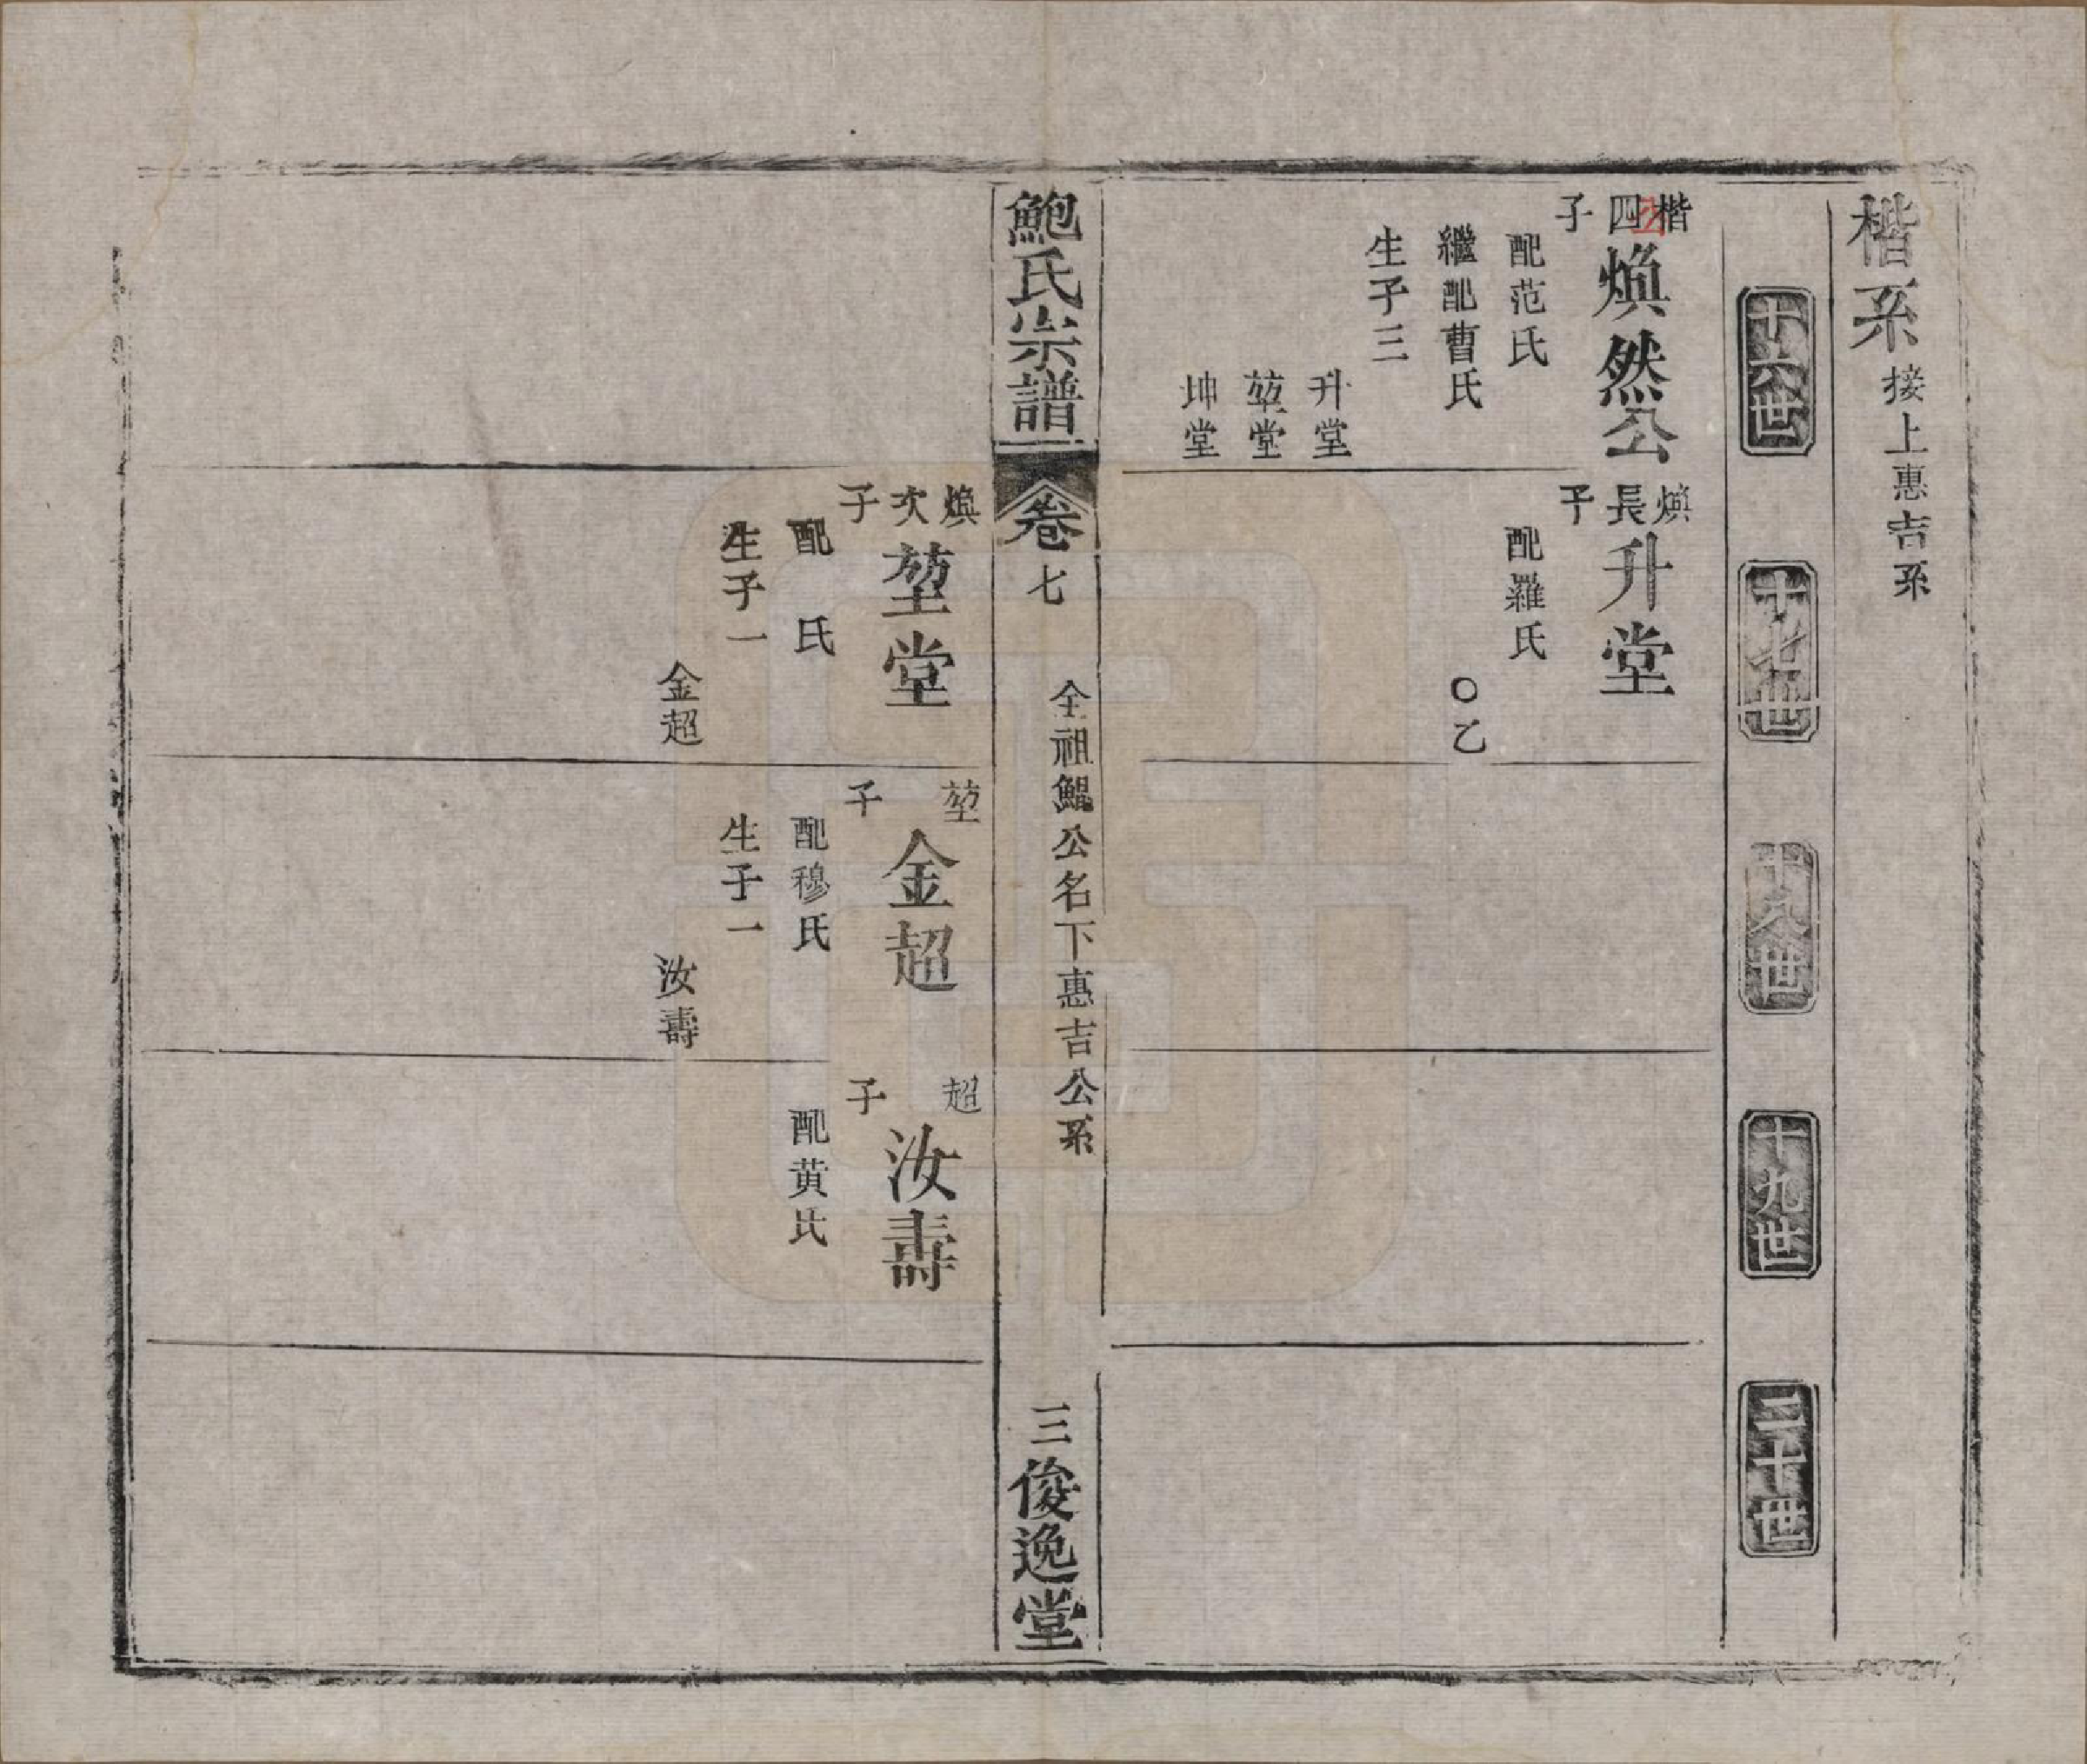 楷系接上惠吉系
十六世
十七世
十八世
十九世
二十世
楷四子
煥然公
配范氏
繼配曹氏
生子三
升堂
堃堂
坤堂
煥長子
升堂
配羅氏
〇乙
鮑氏宗譜
卷七
仝祖鯤公名下惠吉公系
三俊逸堂
煥次子
堃堂
配 氏
生子一
金超
堃子
金超
配穆氏
生子一
汝壽
超子
汝壽
配黃氏